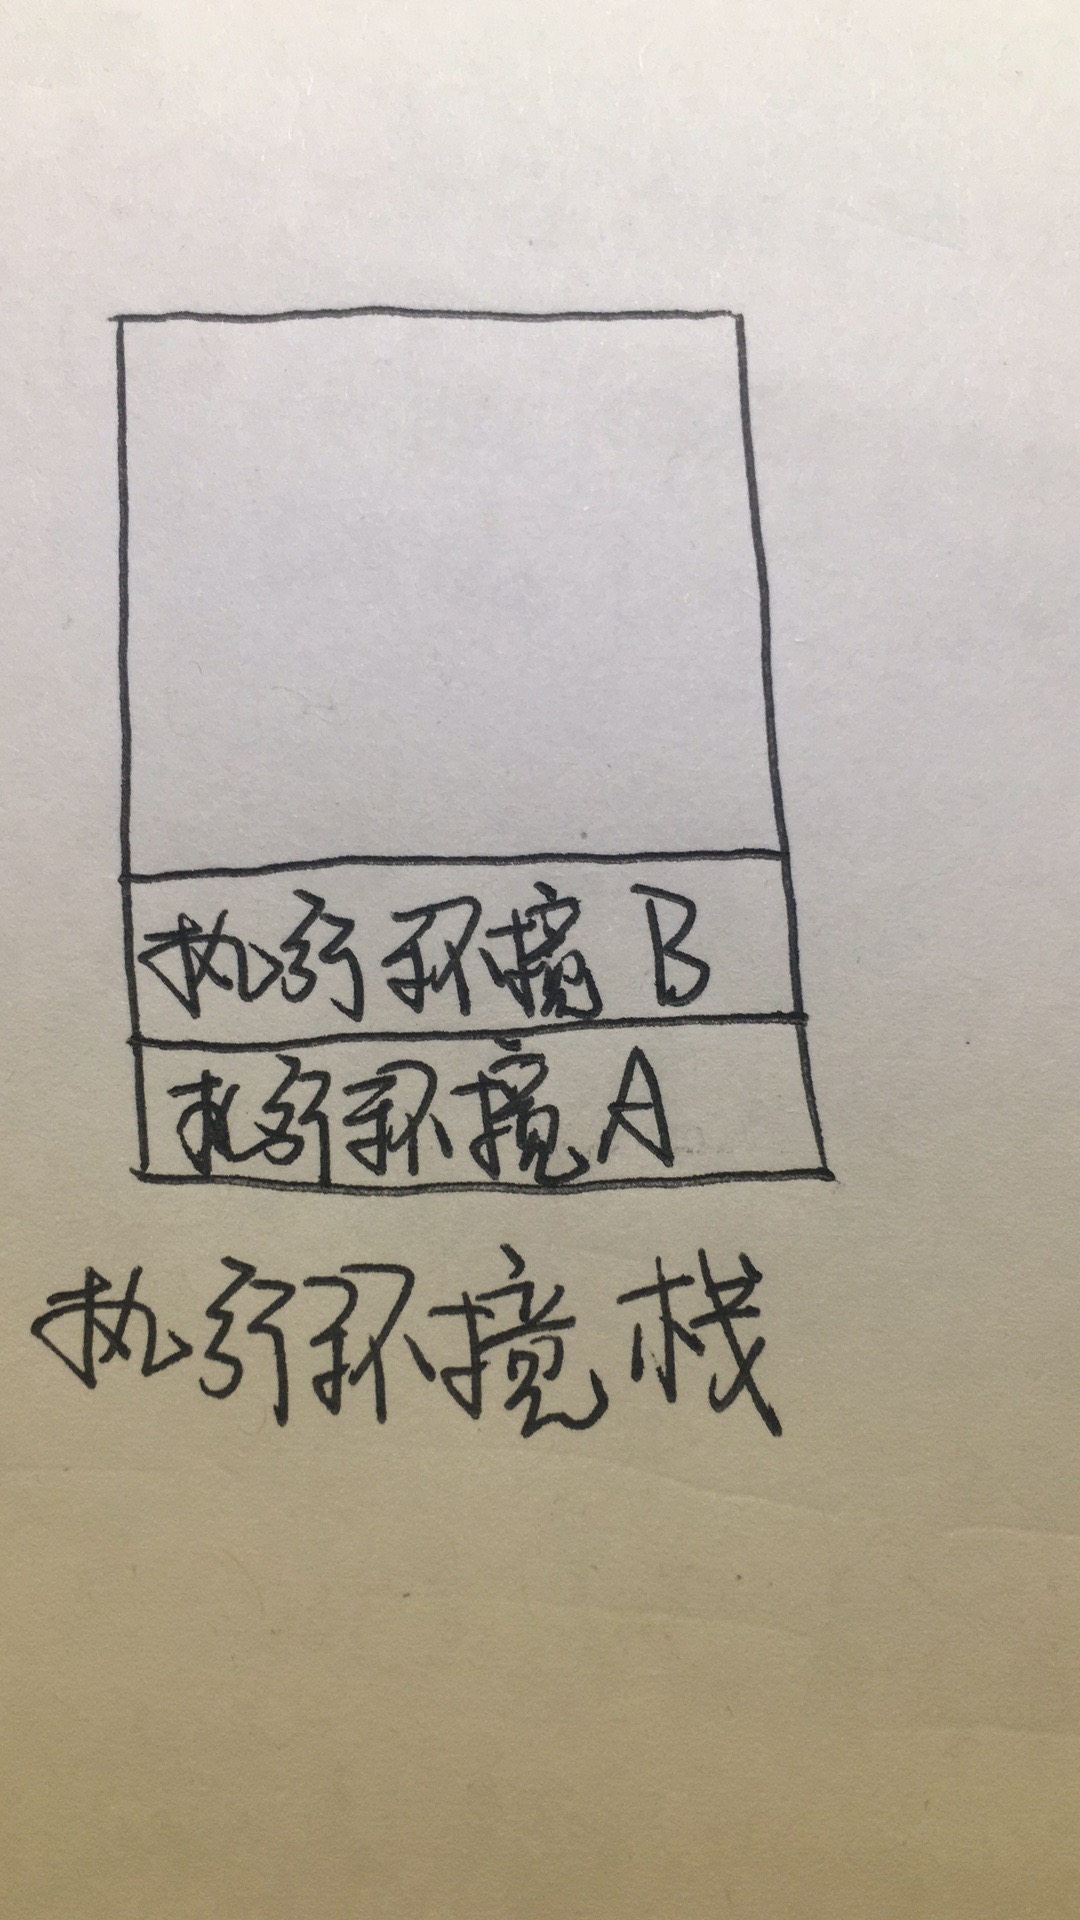 执行环境 B
执行环境 A
执行环境栈